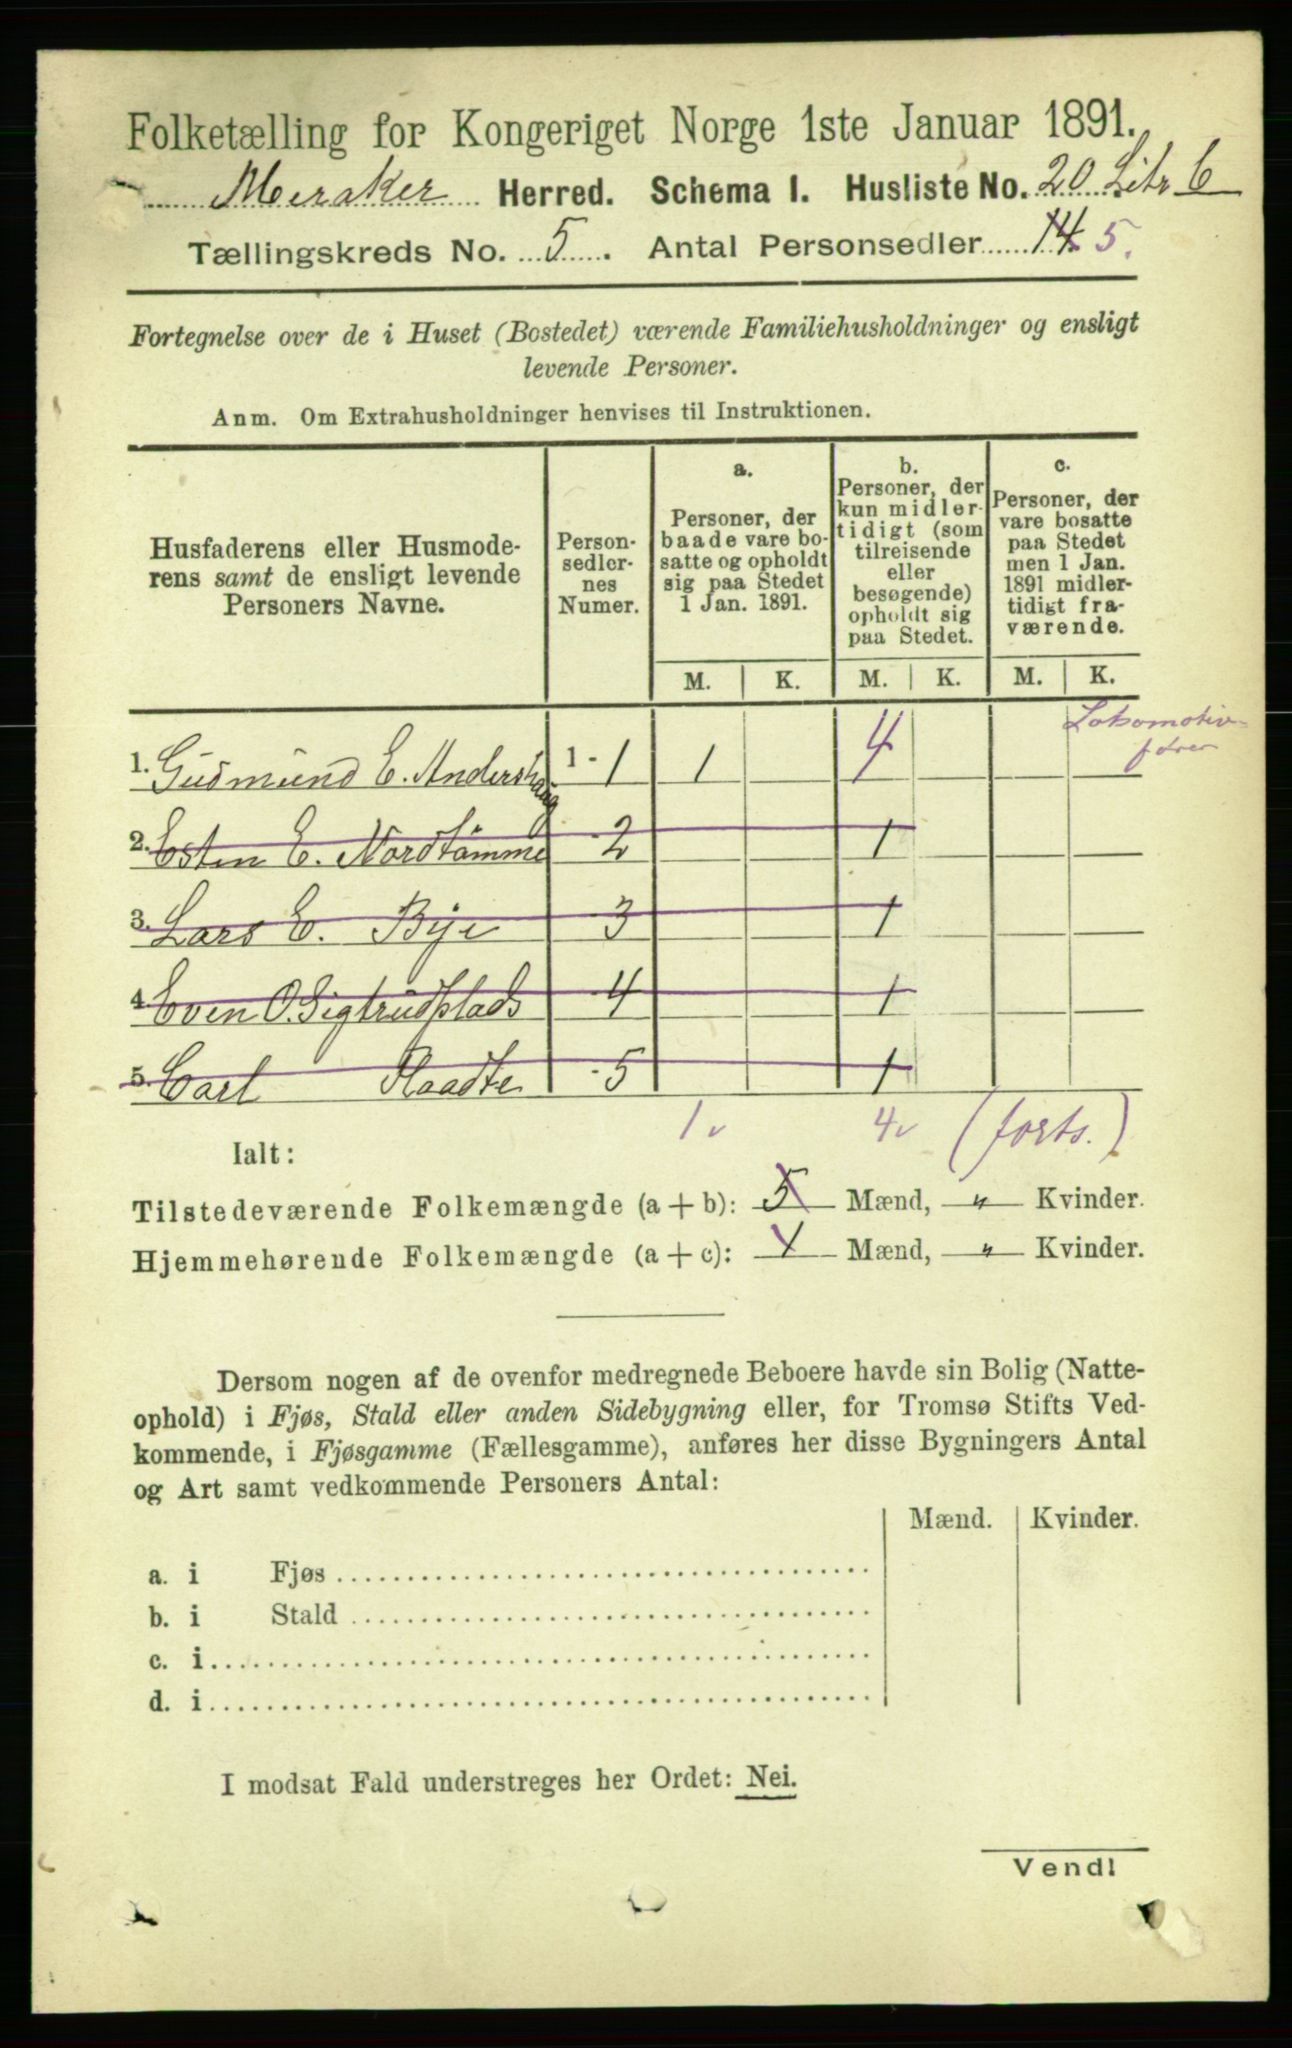 Folketælling for Kongeriget Norge 1ste Januar 1891.
Meraker Herred. Schema I. Husliste No. 20 Litr C
Tællingskreds No. 5. Antal Personsedler 14 5.
Fortegnelse over de i Huset (Bostedet) værende Familiehusholdninger og ensligt
levende Personer.
Anm. Om Extrahusholdninger henvises til Instruktionen.
Husfaderens eller Husmode-
rens samt de ensligt levende
Personers Navne.
Person-
sedler-
nes
Numer.
a.
Personer, der
baade vare bo-
satte og opholdt
sig paa Stedet
1 Jan. 1891.
b.
Personer, der
kun midler-
tidigt (som
tilreisende
eller
besøgende)
opholdt sig
paa Stedet.
c.
Personer, der
vare bosatte
paa Stedet
men 1 Jan.
1891 midler-
tidigt fra-
værende.
M. K. M. K. M. K.
Lokomotiv-
fører
1. Gudmund E. Andershaug 1 - 1 1 4
2. Esten E. Nordtømme 2 1
3. Lars E. Bye 3 1
4. Even O. Sigtrudplads 4 1
5. Carl Raadte 5 1
1 v 4 v (forts.)
Ialt:
Tilstedeværende Folkemængde (a + b): 5 Mænd, „ Kvinder.
Hjemmehørende Folkemængde (a + c): 1 Mænd, „ Kvinder.
Dersom nogen af de ovenfor medregnede Beboere havde sin Bolig (Natte-
ophold) i Fjøs, Stald eller anden Sidebygning eller, for Tromsø Stifts Ved-
kommende, i Fjøsgamme (Fællesgamme), anføres her disse Bygningers Antal
og Art samt vedkommende Personers Antal:
Mænd. Kvinder.
a. i Fjøs
b. i Stald
c. i
d. i
I modsat Fald understreges her Ordet: Nei.
Vend!